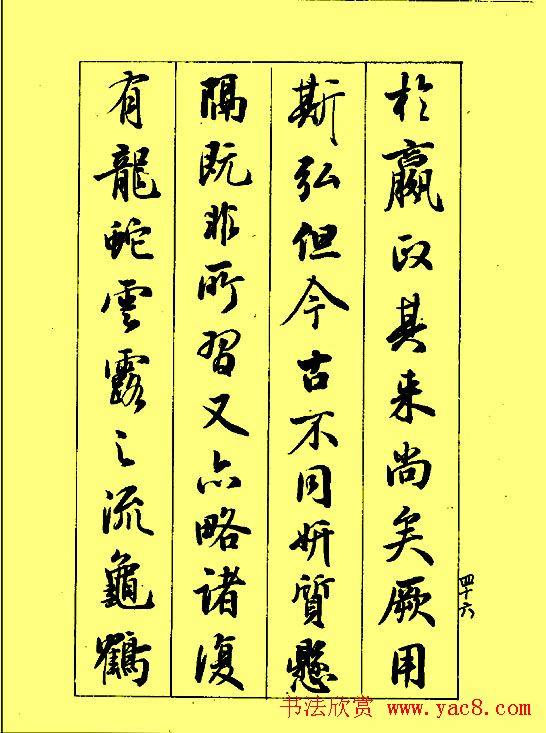 於嬴政其来尚矣厥用
斯弘但今古不同妍質懸
隔既非所習又亦略諸復
有龍蛇雲露之流龜鶴
四十六
书法欣赏 www.yac8.com